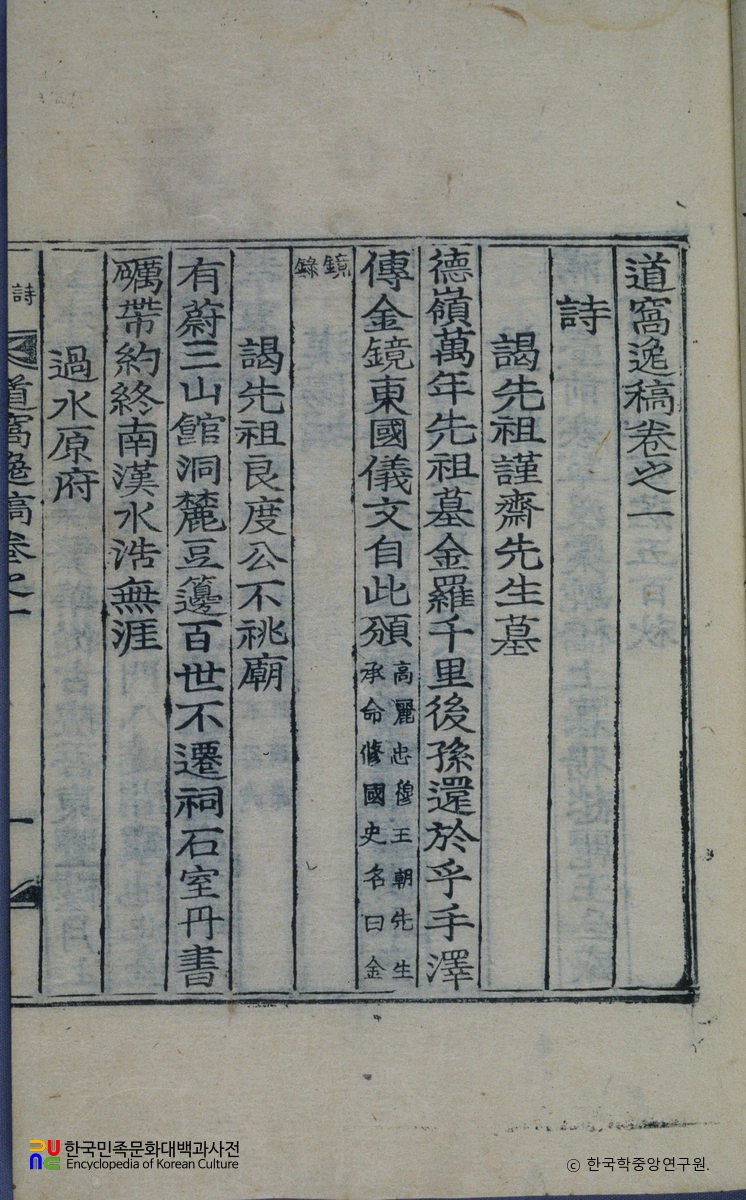 道窩逸稿卷之一
詩
謁先祖謹齋先生墓
德嶺萬年先祖墓金羅千里後孫還於乎手澤
傳金鏡東國儀文自此頒高麗忠穆王朝先生
承命修國史名曰金
鏡
錄
謁先祖良度公不祧廟
有蔚三山館洞麓豆籩百世不遷祠石室丹書
礪帶約終南漢水浩無涯
過水原府
詩
道窩逸稿卷之一
一
한국민족문화대백과사전
Encyclopedia of Korean Culture
© 한국학중앙연구원.